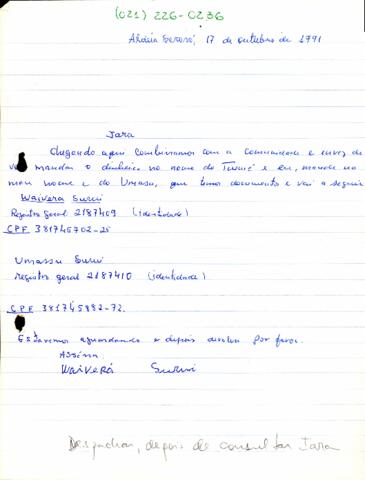 (021) 226-0236
Aldeia Sororó, 17 de outubro de 1991
Jara
Chegando aqui combinamos com a comunidade e envez de
mandar o dinheiro no nome do e eu, mande no
meu nome e do Umassu, que temos documento e vai a seguir
Waiverá Suruí
Registro geral 2187409 (identidade)
CPF 381745702-25
Umassu Suruí
registro geral 2187410 (identidade)
CPF 381745882-72.
Estaremos aguardando e depois devolva por favor.
Assina
Waiverá Suruí
Despachar, depois de consultar Jara